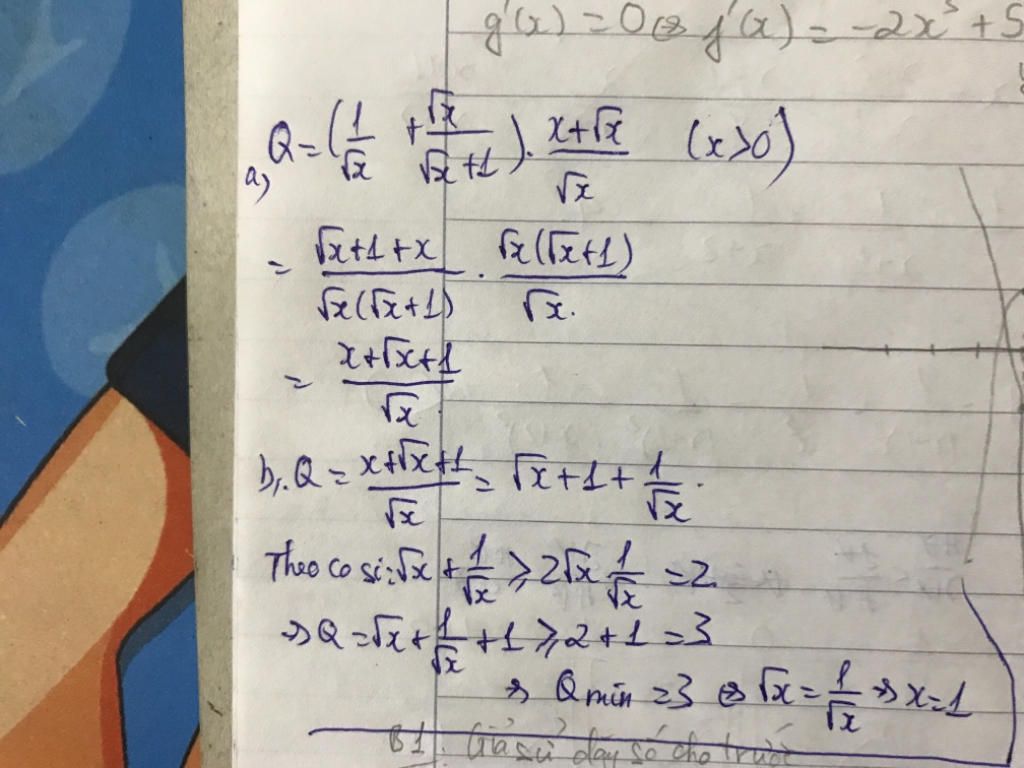 g'(x) = 0 ⇔ f'(x) = -2x + 5
a, Q = (1/√x + √x/(√x+1)) . (x+√x)/√x (x>0)
= (√x+1+x)/(√x(√x+1)) . (√x(√x+1))/√x.
= (x+√x+1)/√x
b, Q = (x+√x+1)/√x = √x+1+1/√x.
Theo cosi: √x + 1/√x ⩾ 2√x 1/√x = 2.
⇒ Q = √x + 1/√x + 1 ⩾ 2+1 = 3
⇒ Q min = 3 ⇔ √x = 1/√x ⇒ x=1
B1. Giả sử dãy số cho trước